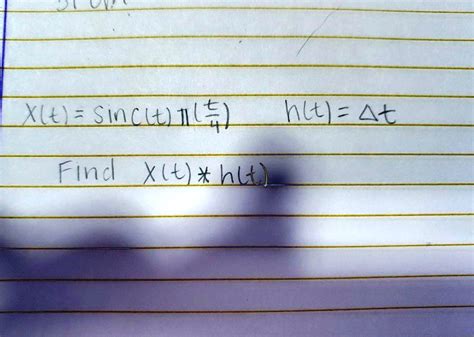 x(t) = sinc(t) π(t/4)   h(t) = Δt
Find x(t) * h(t)